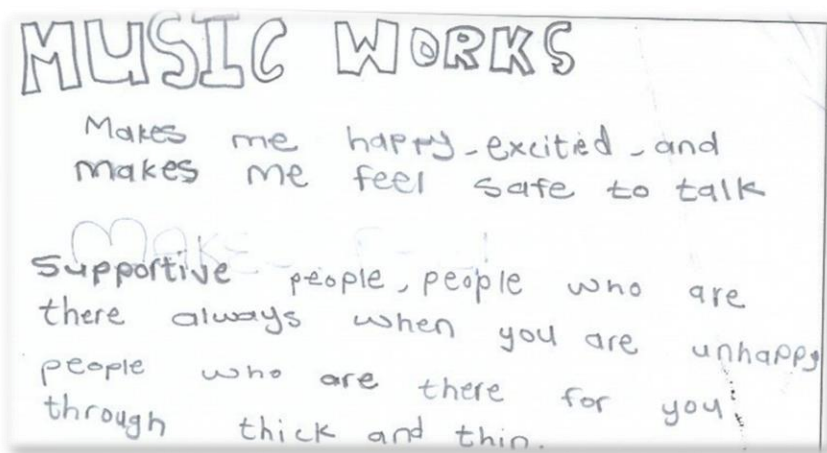 MUSIC WORKS
Makes me happy - excited - and
makes me feel safe to talk
Supportive people, people who are
there always when you are unhappy
people who are there for you
through thick and thin.